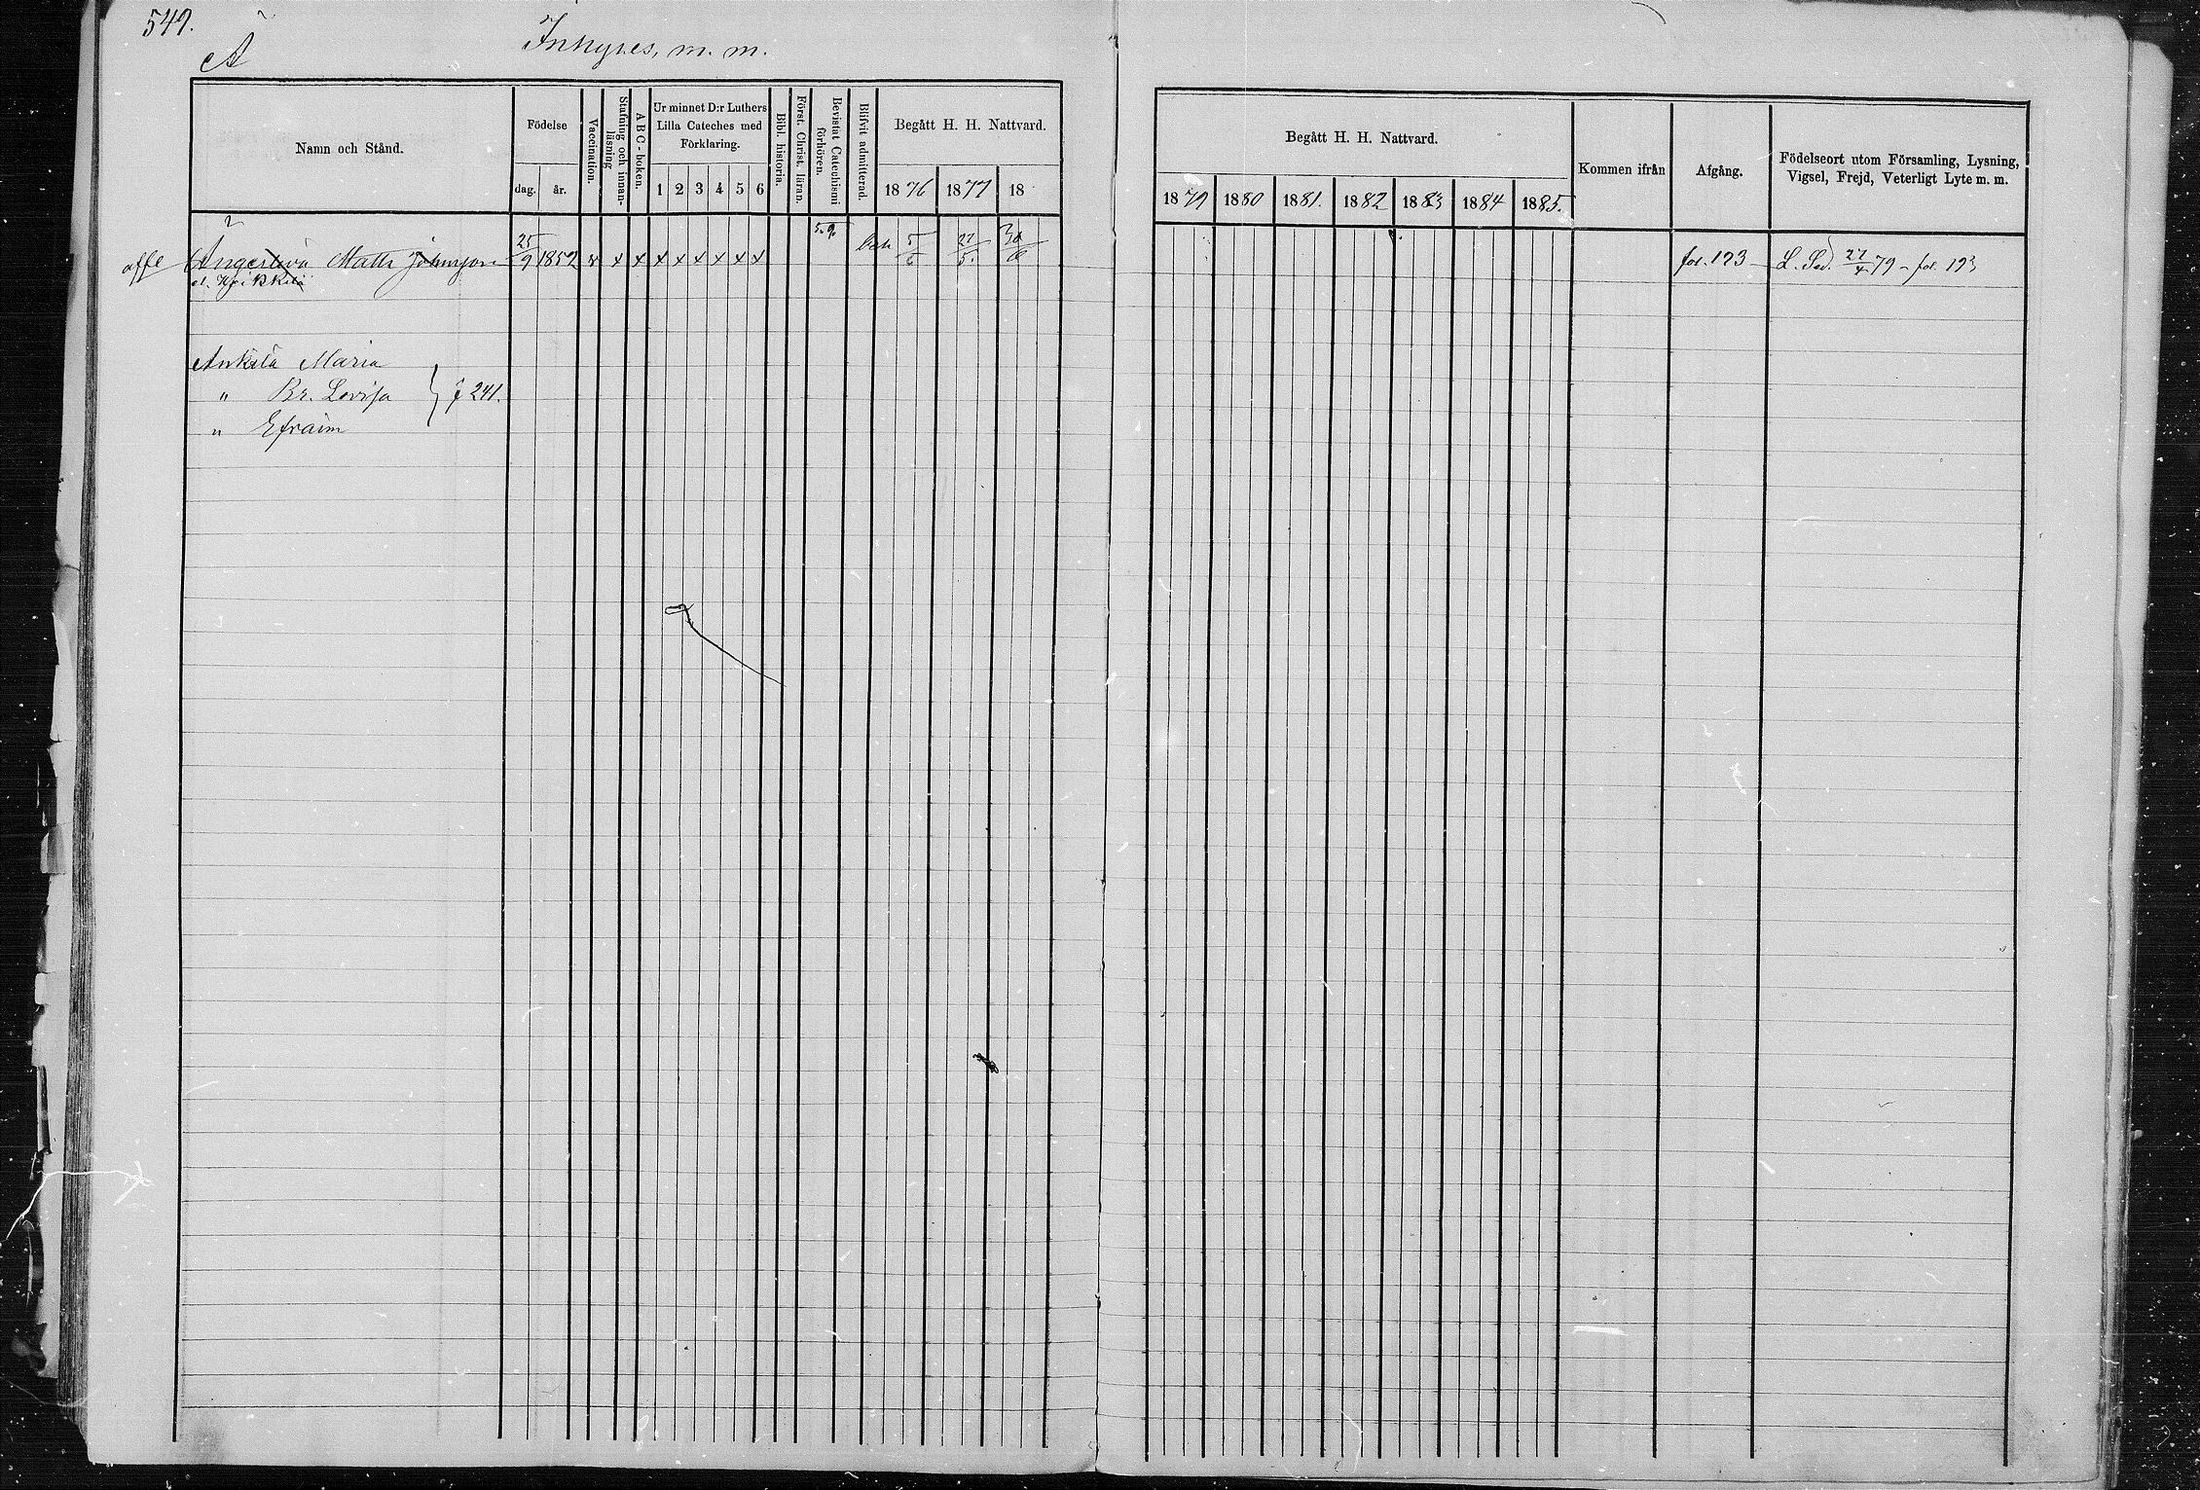 549.
A
Inhyses, m. m.
Namn och Stånd.
Födelse
dag. år.
Vaccination.
Stafning och innan-läsning
ABC-boken.
Ur minnet D:r Luthers Lilla Cateches med Förklaring.
1 2 3 4 5 6
Bibl. historia.
Förest. Christ. läran.
Bevistat Catechismi förhören.
Blifvit admitterad.
Begått H. H. Nattvard.
1876 1877 18
Begått H. H. Nattvard.
1879 1880 1881. 1882 1883 1884 1885.
Kommen ifrån
Afgång.
Födelseort utom Församling, Lysning, Vigsel, Frejd, Veterligt Lyte m. m.
Matts Johnsson 25/9 1852 x x x x x x x x x 5/6 27/5 fol. 123 L. Sed. 27/4 79 - fol. 123
Ankila Maria
" Br. Lovisa } f 241.
" Efraim